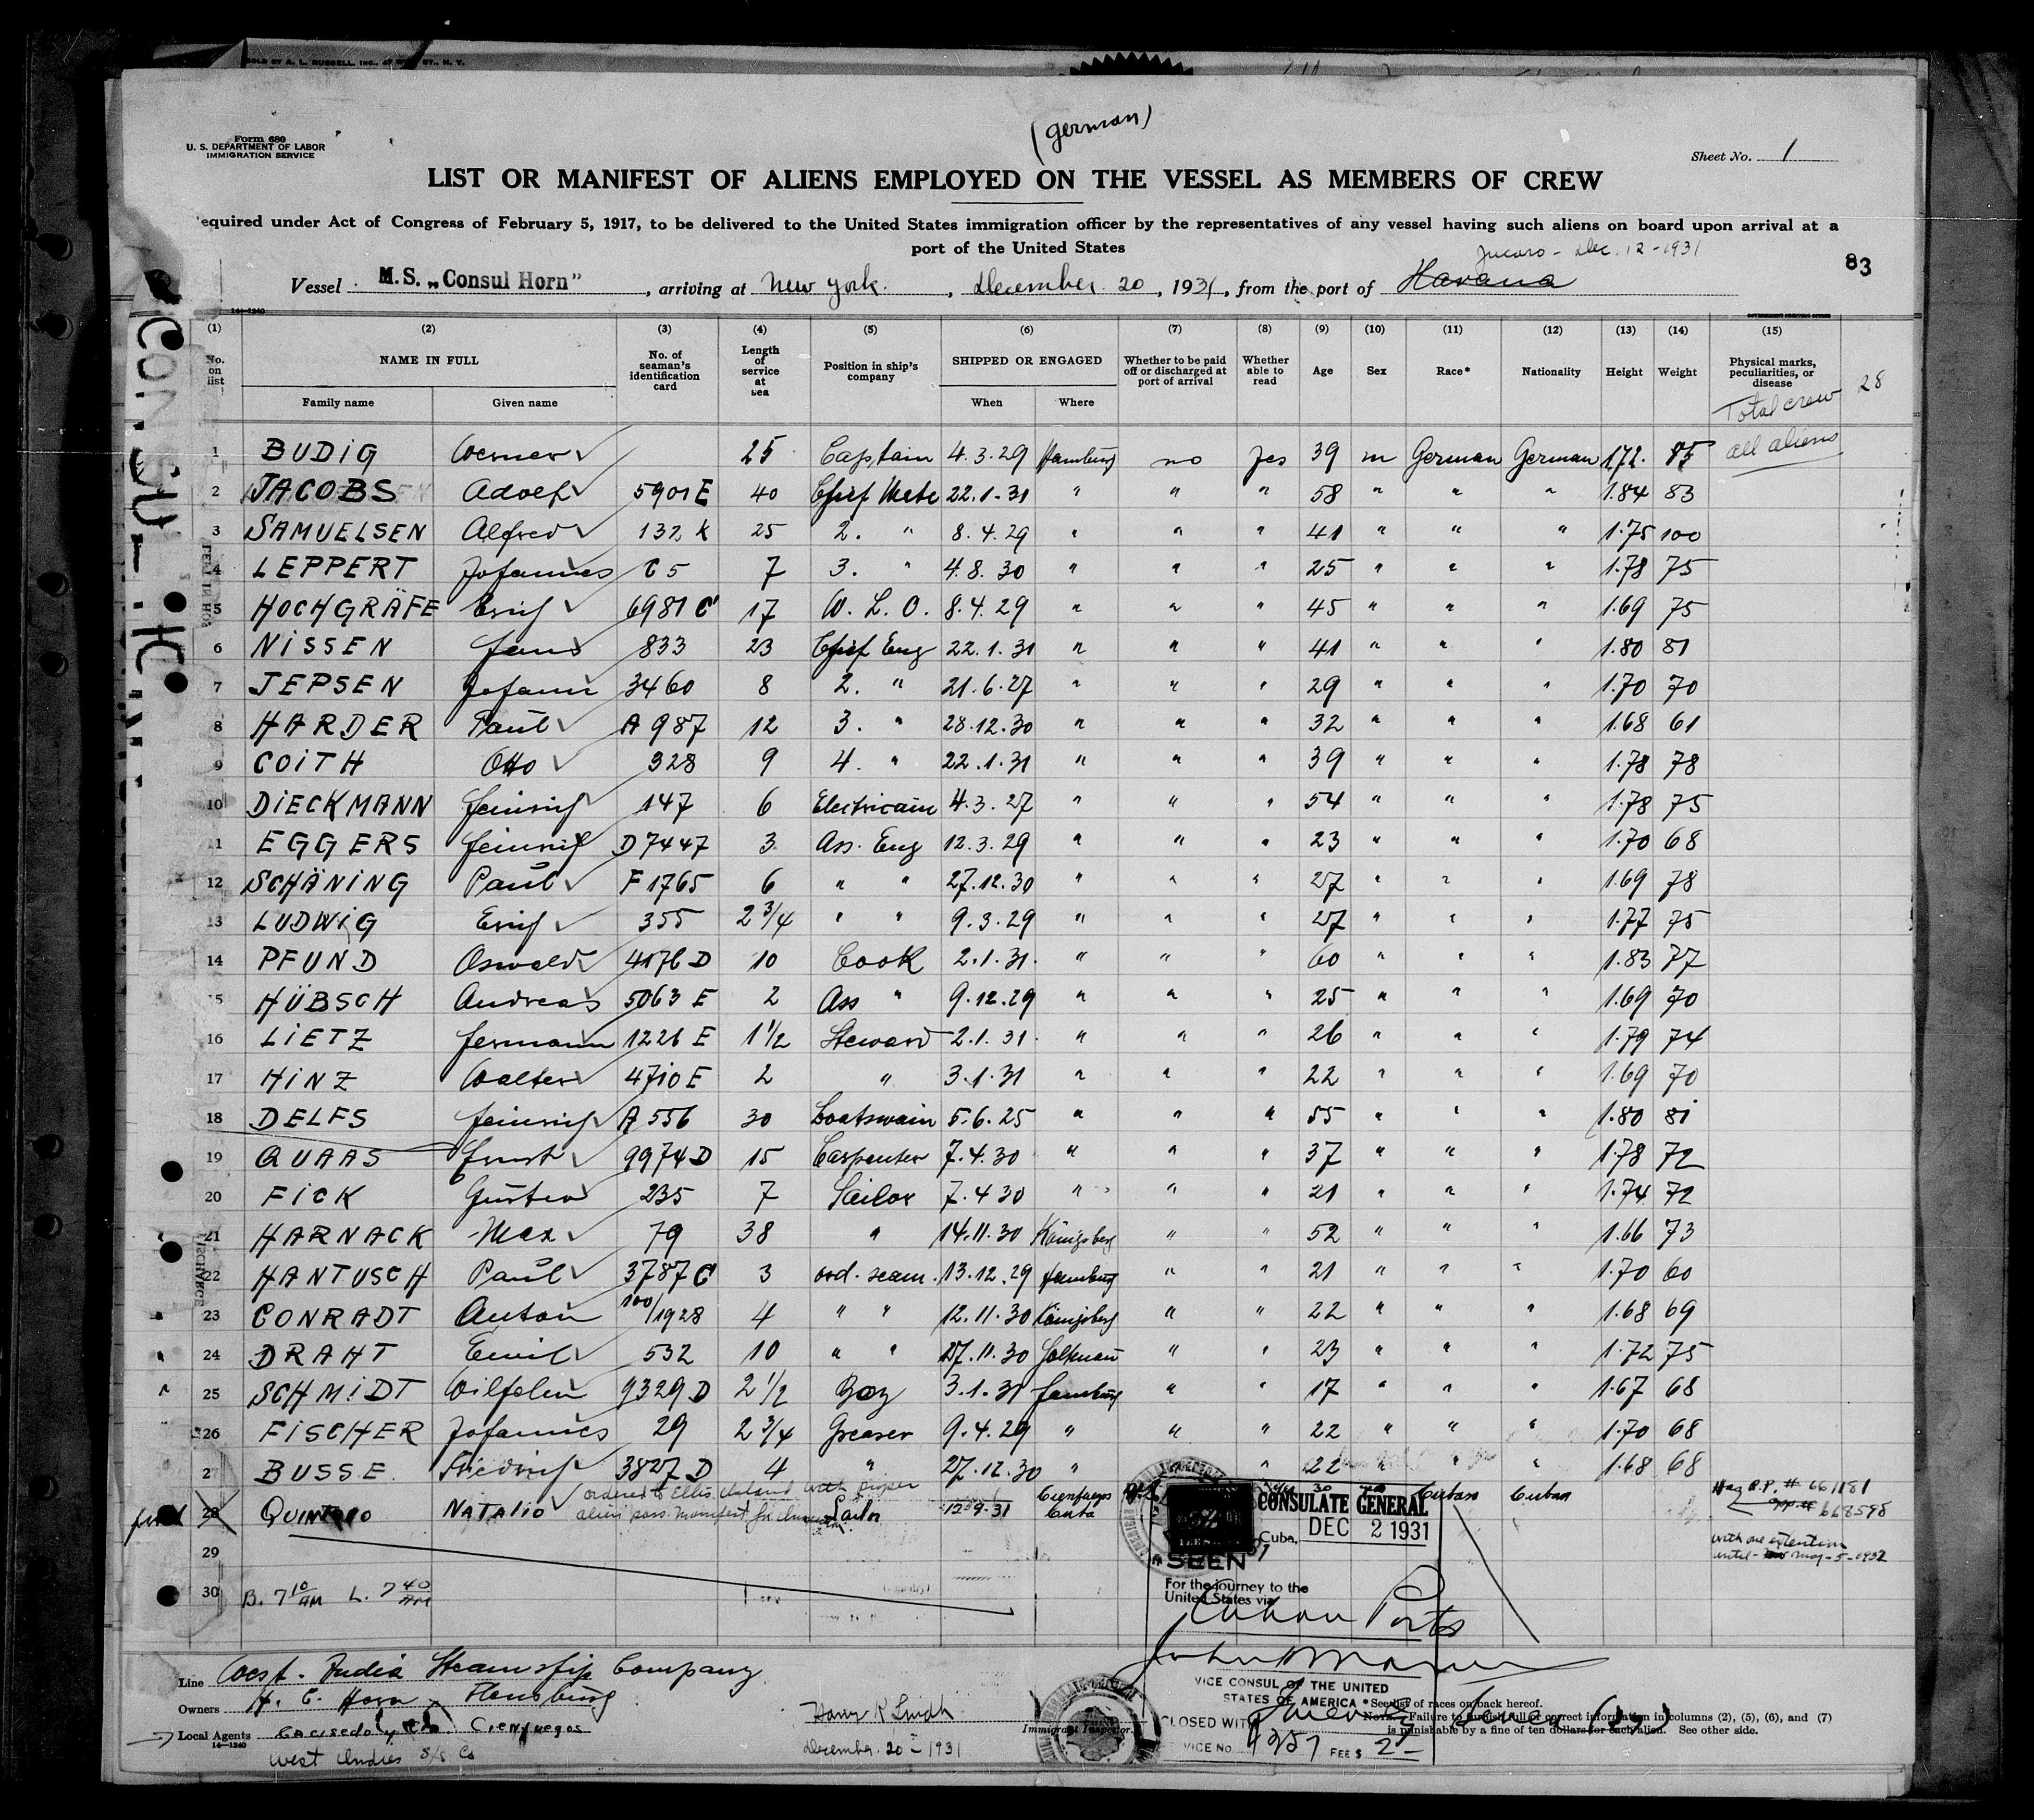 SOLD BY A. L. RUSSELL, INC., 47 W ST., N. Y.
(German)
Form 680
U. S. DEPARTMENT OF LABOR
IMMIGRATION SERVICE
Sheet No. 1
LIST OR MANIFEST OF ALIENS EMPLOYED ON THE VESSEL AS MEMBERS OF CREW
equired under Act of Congress of February 5, 1917, to be delivered to the United States immigration officer by the representatives of any vessel having such aliens on board upon arrival at a
port of the United States
Jucaro - Dec. 12-1931
83
Vessel M.S. „Consul Horn", arriving at New York, December 20, 1931, from the port of Havana
14—1240
(1) (2) (3) (4) (5) (6) (7) (8) (9) (10) (11) (12) (13) (14) (15)
No. on list NAME IN FULL No. of seaman's identification card Length of service at sea Position in ship's company SHIPPED OR ENGAGED Whether to be paid off or discharged at port of arrival Whether able to read Age Sex Race* Nationality Height Weight Physical marks, peculiarities, or disease
Family name Given name When Where
Total crew 28
all aliens
1 BUDIG Werner 25 Captain 4.3.29 Hamburg no yes 39 m German German 172. 85
2 JACOBS Adolf 5901 E 40 Chief Mate 22.1.31 " " " 58 " " " 1.84 83
3 SAMUELSEN Alfred 132 K 25 2. " 8.4.29 " " " 41 " " " 1.75 100
4 LEPPERT Johannes C 5 7 3. " 4.8.30 " " " 25 " " " 1.78 75
5 HOCHGRÄFE Erich 6981 C 17 W. L. O. 8.4.29 " " " 45 " " " 1.69 75
6 NISSEN Hans 833 23 Chief Eng 22.1.31 " " " 41 " " " 1.80 81
7 JEPSEN Johann 3460 8 2. " 21.6.27 " " " 29 " " " 1.70 70
8 HARDER Paul A 987 12 3. " 28.12.30 " " " 32 " " " 1.68 61
9 COITH Otto 328 9 4. " 22.1.31 " " " 39 " " " 1.78 78
10 DIECKMANN Heinrich 147 6 Electricain 4.3.27 " " " 54 " " " 1.78 75
11 EGGERS Heinrich D 7447 3 Ass. Eng 12.3.29 " " " 23 " " " 1.70 68
12 SCHÄNING Paul F 1765 6 " " 27.12.30 " " " 27 " " " 1.69 78
13 LUDWIG Erich 355 2 3/4 " " 9.3.29 " " " 27 " " " 1.77 75
14 PFUND Oswald 4176 D 10 Cook 2.1.31 " " " 60 " " " 1.83 77
15 HÜBSCH Andreas 5063 E 2 Ass " 9.12.29 " " " 25 " " " 1.69 70
16 LIETZ Hermann 1226 E 1 1/2 Steward 2.1.31 " " " 26 " " " 1.79 74
17 HINZ Walter 4710 E 2 " 3.1.31 " " " 22 " " " 1.69 70
18 DELFS Heinrich A 556 30 Boatswain 5.6.25 " " " 55 " " " 1.80 81
19 QUAAS Ernst 9974 D 15 Carpenter 7.4.30 " " " 37 " " " 1.78 72
20 FICK Gustav 235 7 Sailor 7.4.30 " " " 21 " " " 1.74 72
21 HARNACK Max 79 38 " 14.11.30 Königsberg " " 52 " " " 1.66 73
22 HANTUSCH Paul 3787 C 3 ord. seam. 13.12.29 Hamburg " " 21 " " " 1.70 60
23 CONRADT Anton 100/1928 4 " " 12.11.30 Königsberg " " 22 " " " 1.68 69
24 DRAHT Emil 532 10 " " 27.11.30 Holtenau " " 23 " " " 1.72 75
25 SCHMIDT Wilhelm 9329 D 2 1/2 Boy 3.1.31 Hamburg " " 17 " " " 1.67 68
26 FISCHER Johannes 29 2 3/4 Greaser 9.4.29 " " " 22 " " " 1.70 68
27 BUSSE Friedrich 3827 D 4 " 27.12.30 " " 22 " " " 1.68 68
ordered to Ellis Island with proper
alien pass. manifest for
28 NATALIO Sailor 12-9-31 Cienfuegos Cuba 30 Cuban Cuban
Has R.P. # 661181
app. # 668598
with one extention
until May-5-1932
29
30 B. 7 10/AM L. 7 40/AM
CONSULATE GENERAL
DEC 2 1931
Cuba,
SEEN
For the journey to the
United States via
Cuban Ports
VICE CONSUL OF THE UNITED
STATES OF AMERICA
CLOSED WITH
VICE NO. 4257 FEE $ 2-
Line West-India Steamship Company
Owners H. C. Horn, Flensburg
Local Agents Cacisedo y Cia Cienfuegos
14—1240
West Indies S/S Co
Harry R Lindh
Immigrant Inspector.
December 20-1931
*See list of races on back hereof.
NOTE.—Failure to furnish full or correct information in columns (2), (5), (6), and (7)
is punishable by a fine of ten dollars for each alien. See other side.